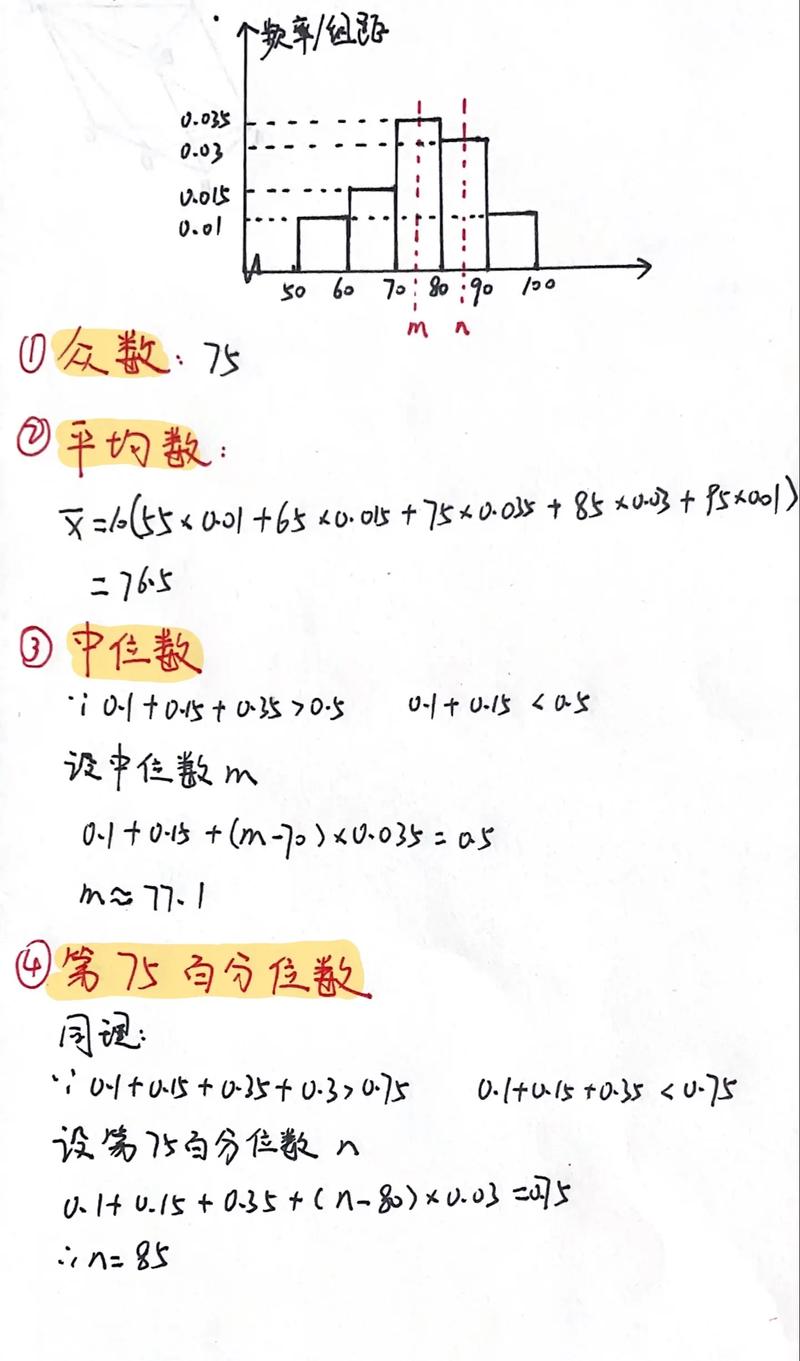 频率/组距
0.035
0.03
0.015
0.01
50 60 70 80 90 100
m n
① 众数: 75
② 平均数:
x̄=10(55×0.01+65×0.015+75×0.035+85×0.03+95×0.01)
=76.5
③ 中位数
∵ 0.1+0.15+0.35>0.5 0.1+0.15<0.5
设中位数m
0.1+0.15+(m-70)×0.035=0.5
m≈77.1
④ 第75百分位数
同理:
∵ 0.1+0.15+0.35+0.3>0.75 0.1+0.15+0.35<0.75
设第75百分位数 n
0.1+0.15+0.35+(n-80)×0.03=0.75
∴n=85